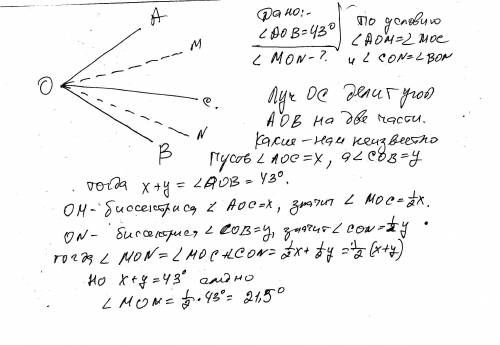 A
M
O
C.
N
B
Дано:
∠AOB=43°
∠ MON-?
По условию
∠AOM=∠MOC
и ∠CON=∠BON
Луч OC делит угол
AOB на две части.
Какие-нам неизвестно
Пусть ∠AOC=x, а∠COB=y
тогда x+y=∠AOB=43°.
OM-биссектриса ∠AOC=x, значит ∠ MOC=½x.
ON- биссектриса ∠COB=y, значит ∠CON=½y
тогда ∠ MON=∠MOC+∠CON=½x+½y=½(x+y)
Но x+y=43°
∠MOM=½·43°=21,5°